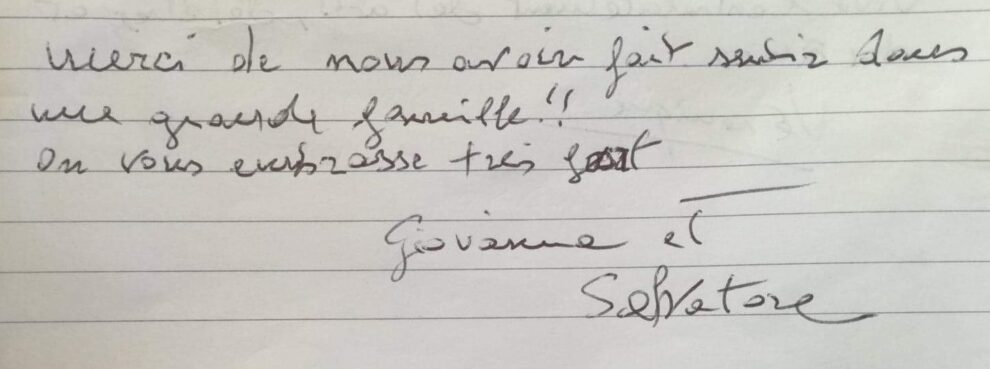 merci de nous avoir fait sentir dans
une grande famille!!
on vous embrasse très fort
Giovanna et
Salvatore